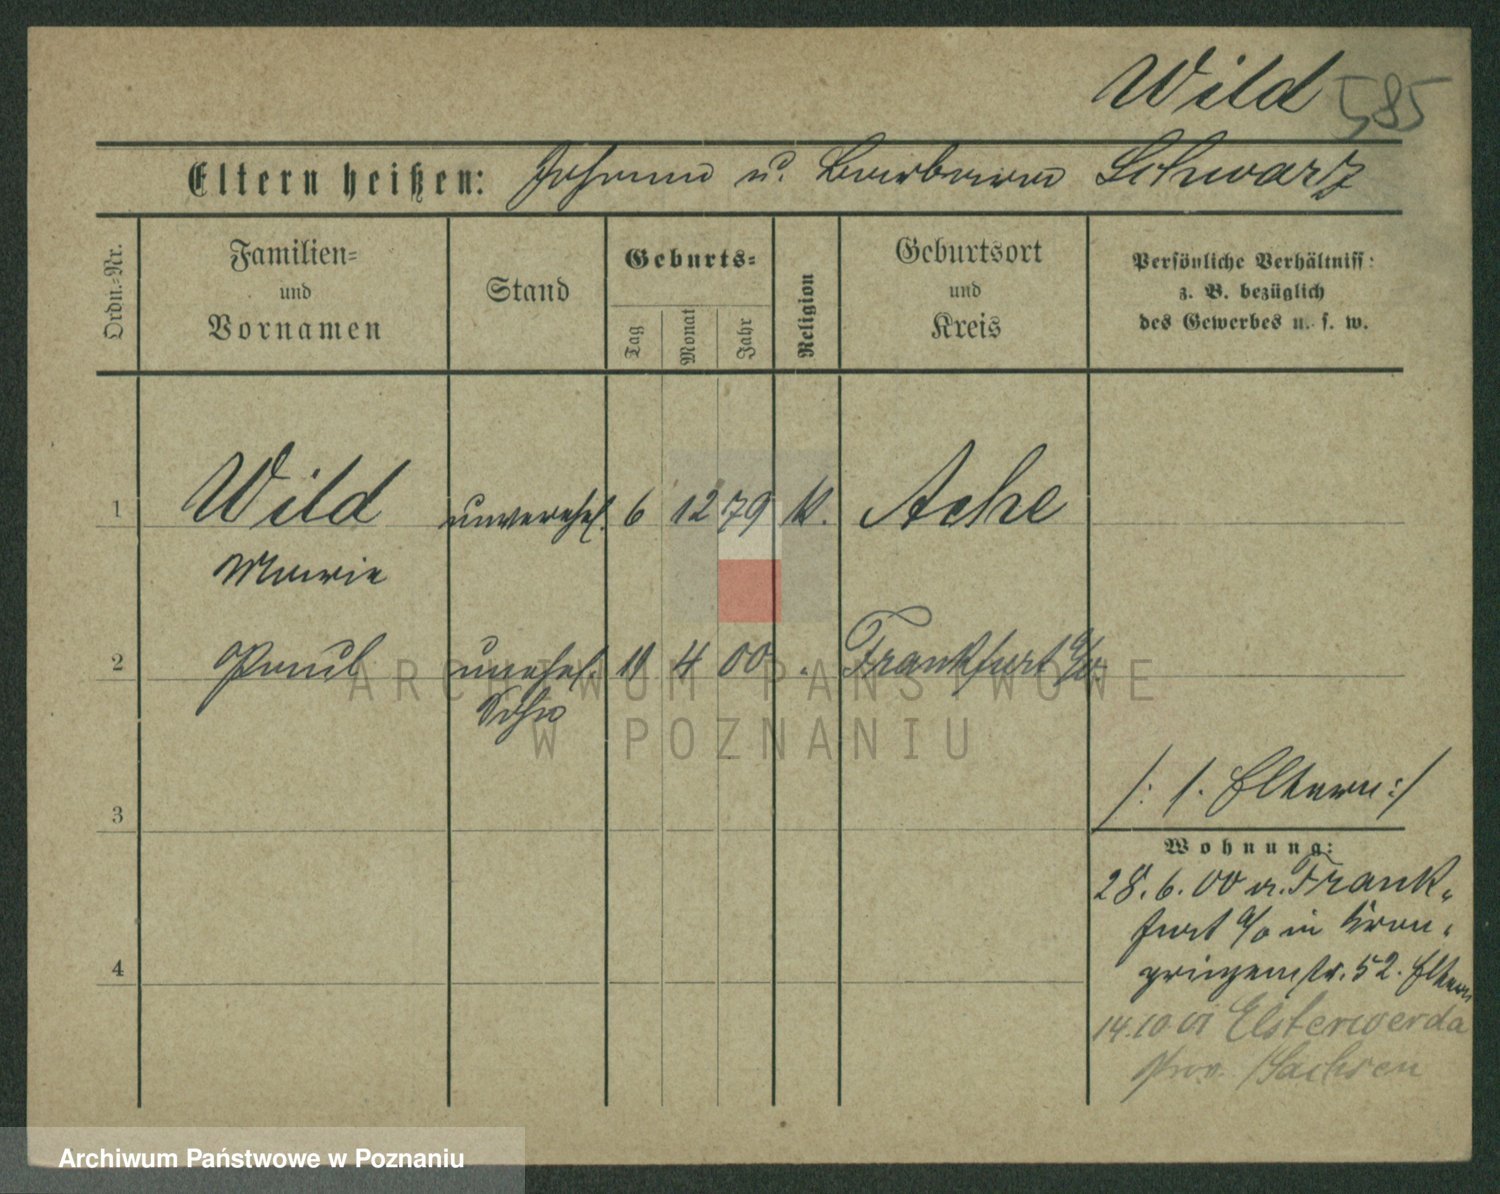 Wild 585
Eltern heißen: Johann u. Barbara Schwartz
Ordn.-Nr.
Familien-
und
Vornamen
Stand
Geburts-
Tag
Monat
Jahr
Religion
Geburtsort
und
Kreis
Persönliche Verhältniss:
z. B. bezüglich
des Gewerbes u. s. w.
1 Wild unverehel. 6 12 79 k. Ache
Marie
2 Paul unehel. 11 4 00 Frankfurt a/o.
Sohn
3
/: s. Eltern :/
Wohnung:
28.6.00 n. Frank-
furt a/o in Kron-
4
prinzenstr. 52. Eltern
14.10 01 Elsterwerda
Prov. Sachsen
ARCHIWUM PAŃSTWOWE
W POZNANIU
Archiwum Państwowe w Poznaniu